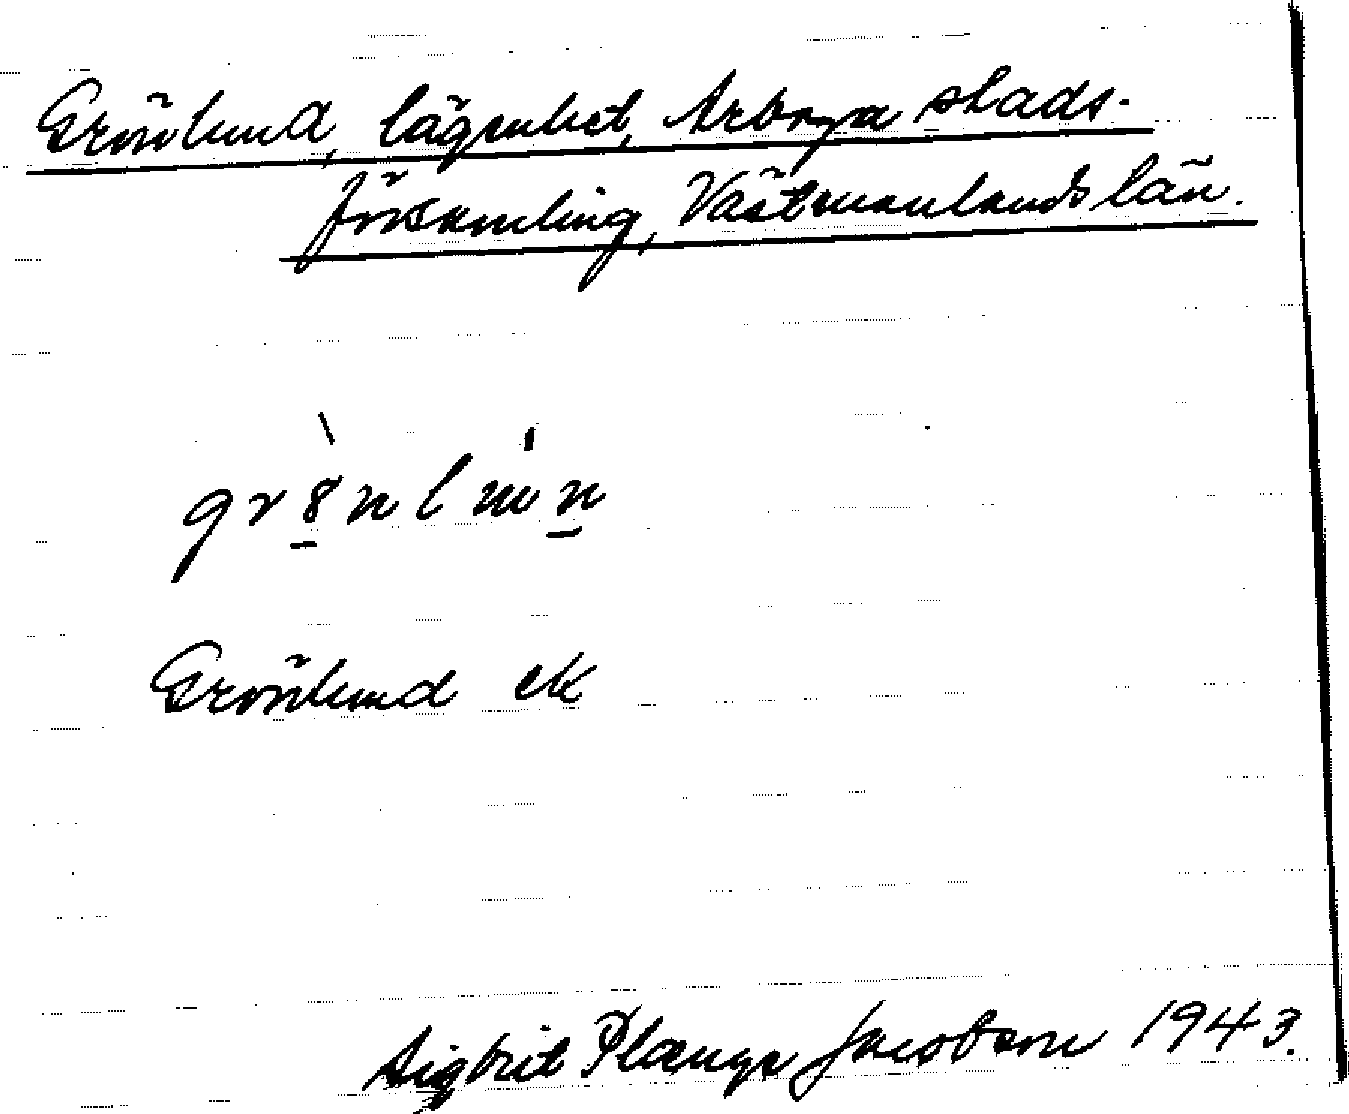 Grönlund, lägenhet, Arboga stads-
församling, Västmanlands län.
Grönlund ek
Sigbrit Plænge Jacobson 1943.